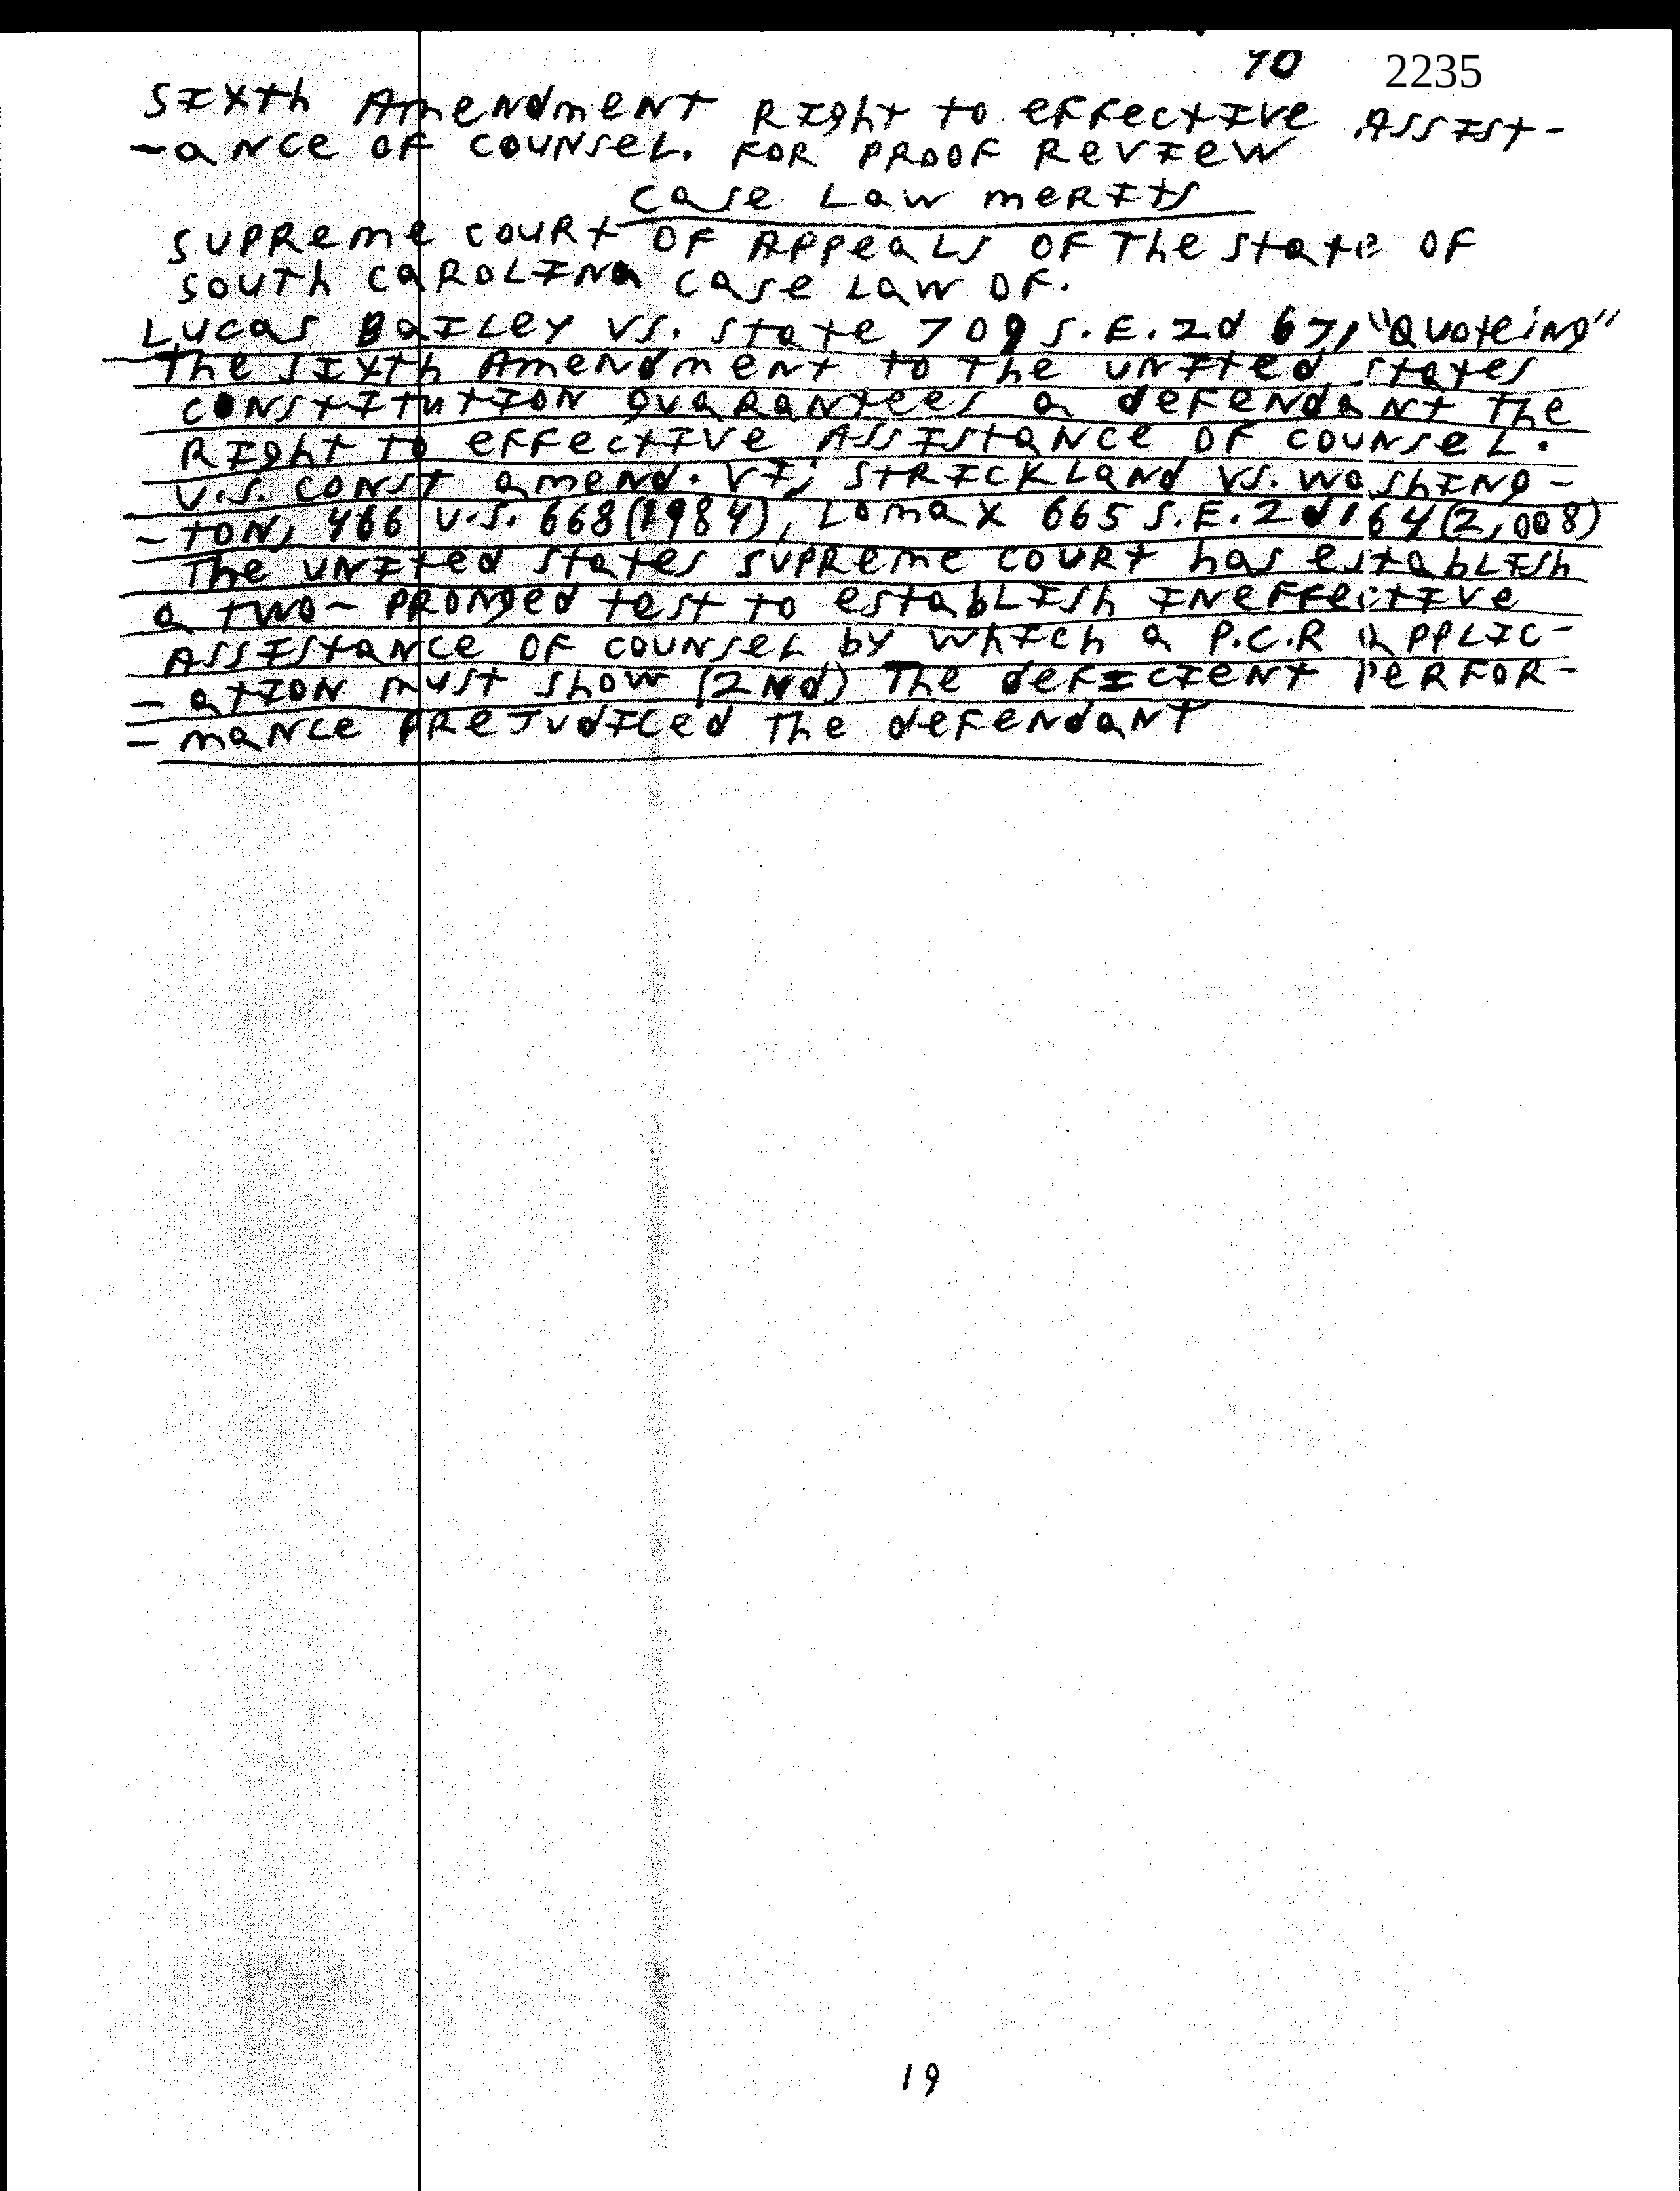 10 2235
SIXth AmeNdmeNT RIght to effectIve ASSISt-
-aNce OF COUNSeL. FOR PROOF RevIew
case Law meRIts
SUPReme COURt OF APPeaLS OF The State OF
SOUTh CaROLINa case Law OF.
LUcas BaILey VS. State 709 S.E.2d 671 "QUoteing"
The SIXth AmeNdmeNt to The UNIted States
CONStItutION gUaRaNtees a defeNdaNt The
RIght TO effectIve ASSIStaNce OF COUNSeL.
U.S. CONST ameNd. VI; StRICKLaNd VS. WaShINg-
-TON, 466 U.S. 668(1984), Lomax 665 S.E.2d 164(2,008)
The UNIted States SUPReme COURt has establISh
a two- PRONged test to establISh INeffectIve
ASSIStaNce OF COUNSeL by which a P.C.R APPLIC-
-atION must show (2Nd) The defIcIeNt PeRFOR-
-maNce PReJUdIced The defeNdaNT
19